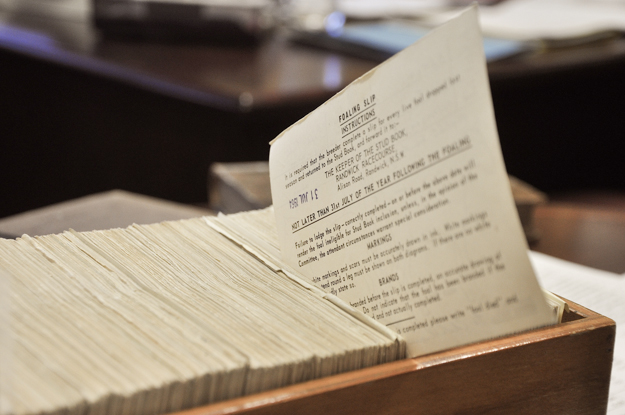 FOALING SLIP
INSTRUCTIONS
It is required that the breeder complete a slip for every live foal dropped
season and returned to the Stud Book, and forward it to:—
THE KEEPER OF THE STUD BOOK,
RANDWICK RACECOURSE,
Alison Road, Randwick, N.S.W.
31 JUL
NOT LATER THAN 31st JULY OF THE YEAR FOLLOWING THE FOALING
Failure to lodge the slip—correctly completed—on or before the above date will
render the foal ineligible for Stud Book inclusion, unless, in the opinion of the
Committee, the attendant circumstances warrant special consideration.
MARKINGS
white markings and scars must be accurately drawn in ink. White markings
round a leg must be shown on both diagrams. If there are no white
state so.
BRANDS
branded before the slip is completed, an accurate drawing of
Do not indicate that the foal has been branded if the
and not actually completed.
is completed please write "foal died" and